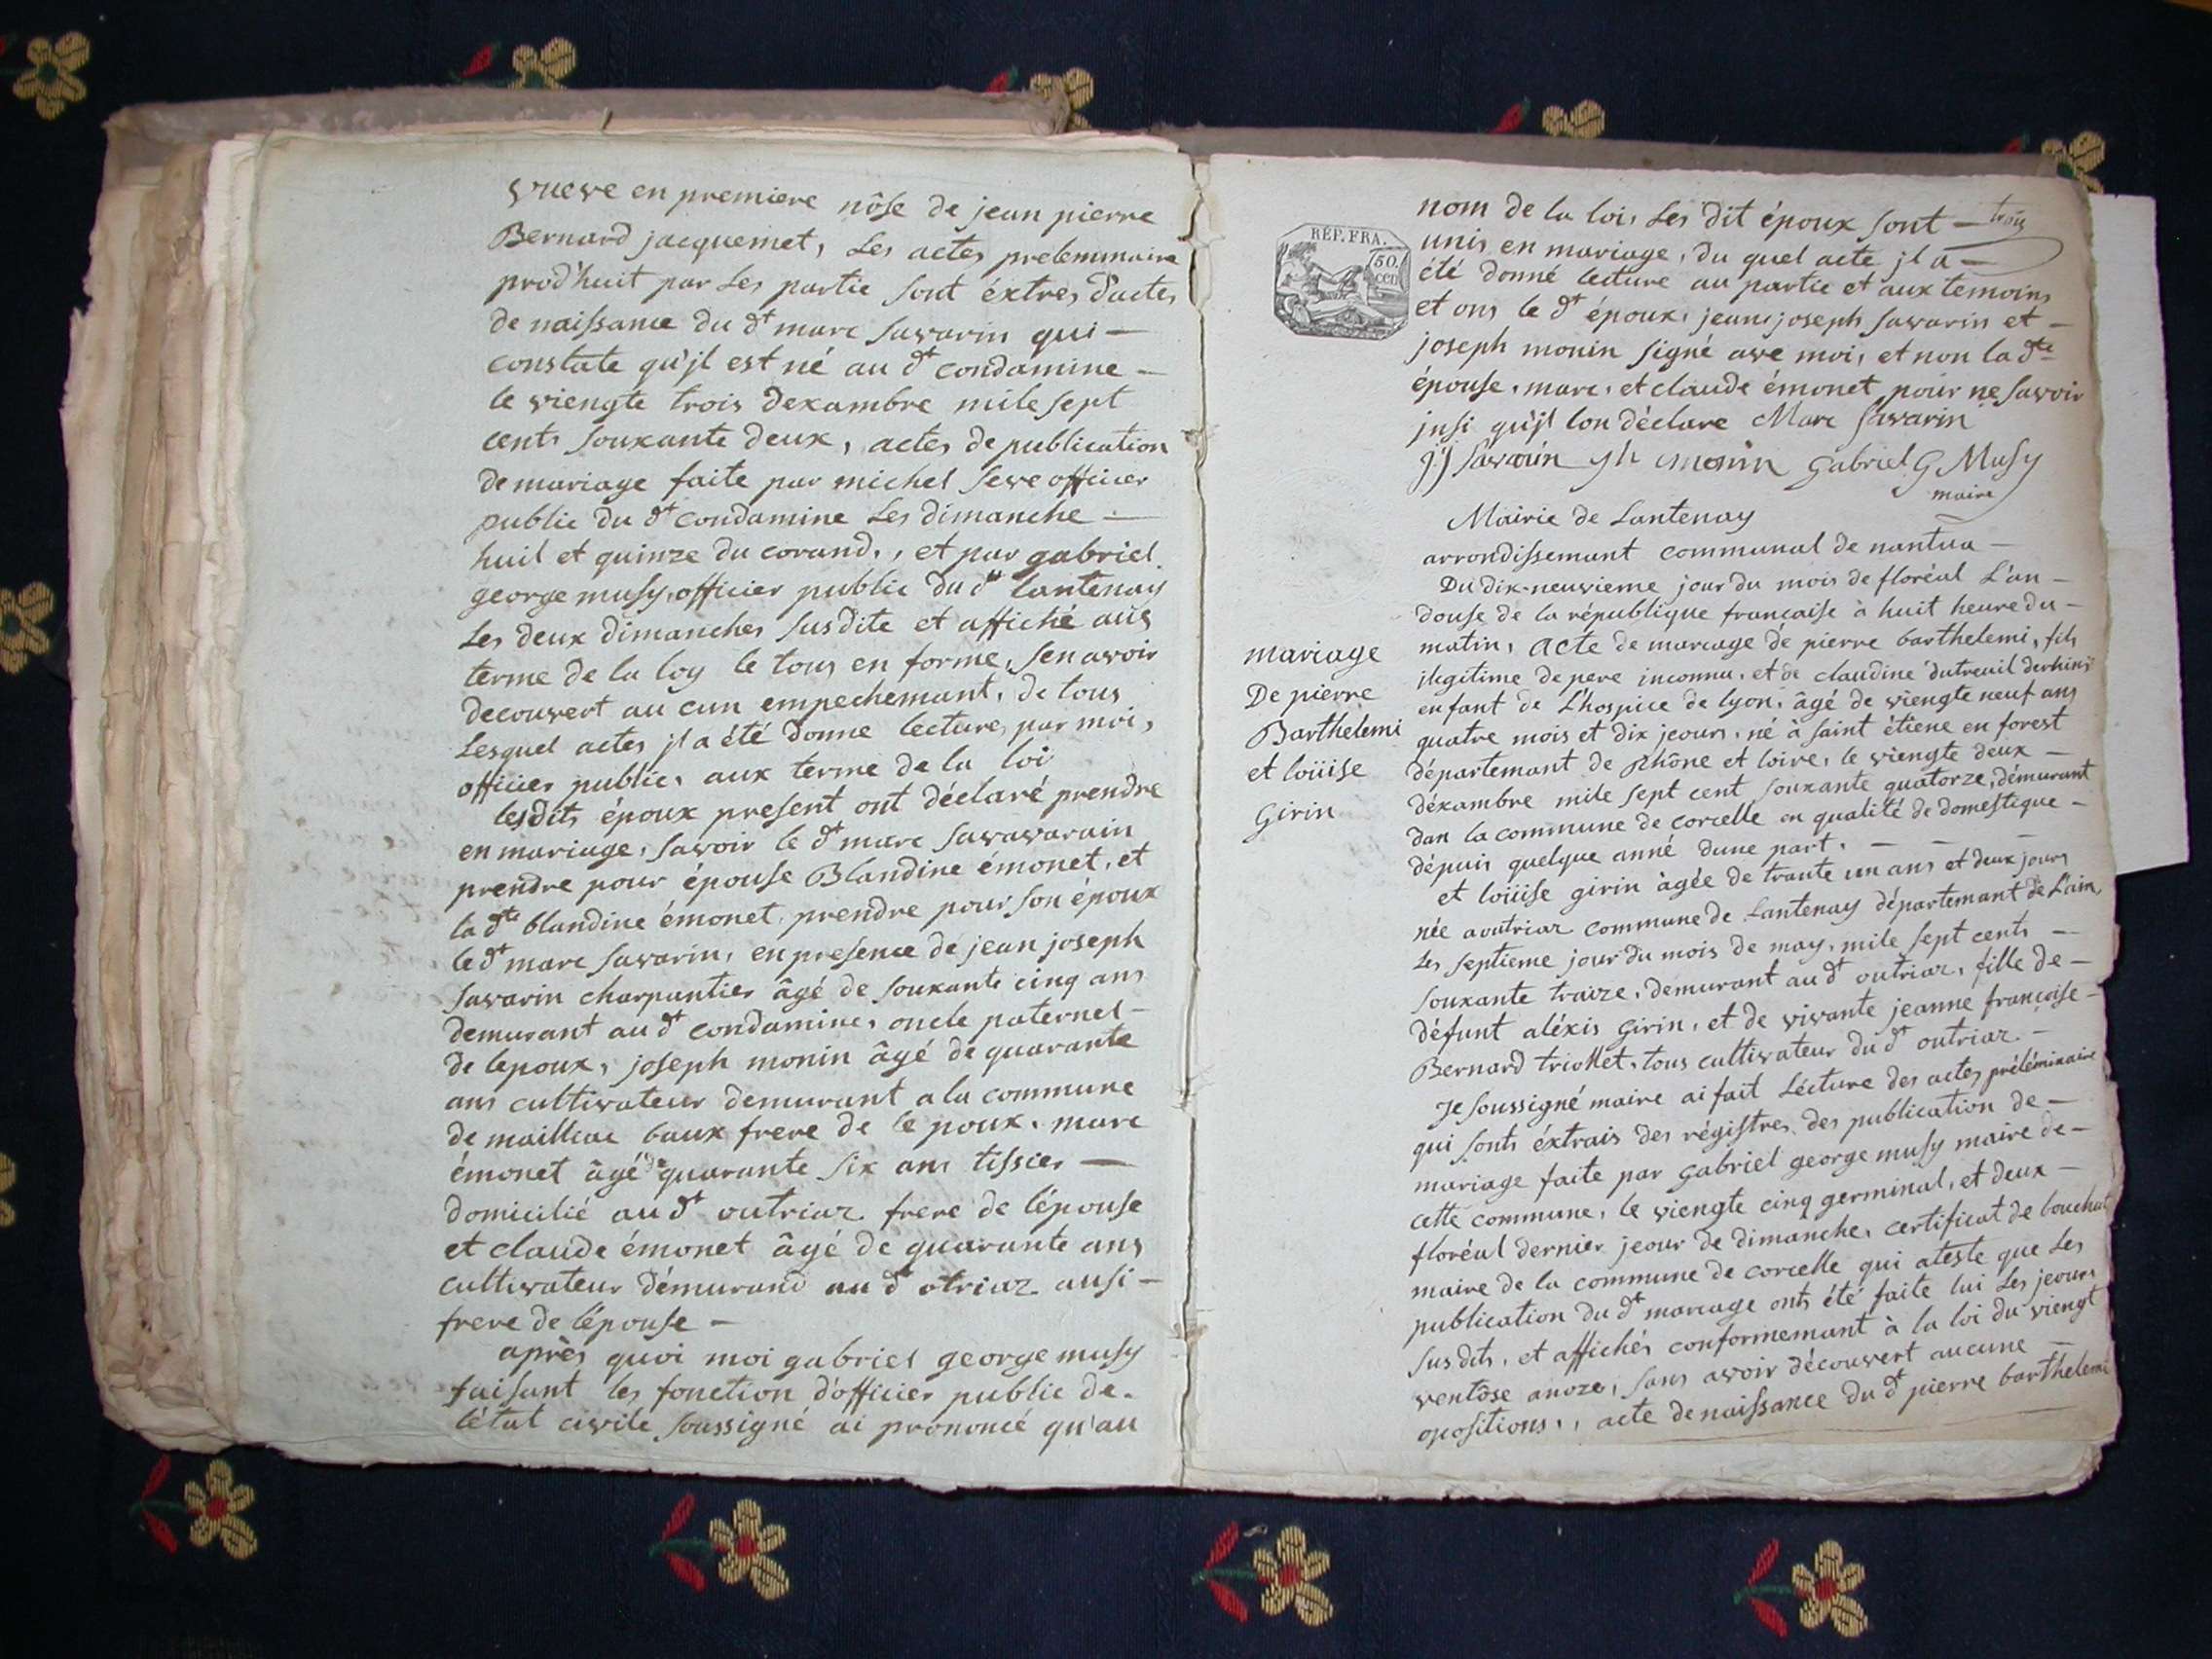 vueve en premiere nôse de jean pierre
Bernard jacquemet, Les actes prelemmaire
prod'huit par Les partie sont éxtres d'actes
de naissance du dt marc savarin qui -
constate qu'jl est né au dt condamine -
le viengte trois dexambre mile sept
cents souxante deux, actes de publication
de mariage faite par michel seve officier
public du dt condamine Les dimanche -
huil et quinze du corand,, et par gabriel
george musy, officier public du dt lantenay
Les deux dimanches susdite et affiché aus
terme de la loy le tous en forme, sen avoir
decouvert au cun empechemant, de tous
Lesquel actes jl a été donne lecture, par moi,
officier public, aux terme de la loi
lesdits époux present ont déclaré prendre
en mariage, savoir le dt marc savawarain
prendre pour épouse Blandine émonet, et
la dte blandine émonet, prendre pour son époux
le dt marc savarin, en presence de jean joseph
savarin charpantier âgé de souxante cinq ans
demurant au dt condamine, oncle paternel -
de lepoux, joseph monin âgé de quarante
ans cultivateur demurant a la commune
de mailliac baux frere de le poux, marc
émonet âgé de quarante six ans tissier -
domicilié au dt outriaz frere de lépouse
et claude émonet âgé de quarante ans
cultivateur démurand au dt otriaz ausi -
frere de l'épouse -
après quoi moi gabriel george musy
faisant les fonction d'officier public de -
létat civile soussigné ai prononcé qu'au
REP. FRA.
50.
cen
nom de la loi, Les dit époux sont - trois
unis en mariage, du quel acte jl a -
été donné lecture au partie et aux temoins
et ons le dt époux, jean joseph savarin et -
joseph monin signé ave moi, et non la dte
épouse, marc, et claude émonet pour ne savoir
jnsi qu'jl lon déclare Marc Savarin
jj Savarin jh monin Gabriel G Musy
maire
Mairie de Lantenay
arrondissemant communal de nantua -
Du dix-neuvieme jour du mois de floréal L'an -
douse de la république francaise à huit heure du -
matin, acte de mariage de pierre barthelemi, fils
jlegitime de pere inconnu, et de claudine dutreuil
enfant de L'hospice de lyon, âgé de viengte neuf ans
quatre mois et dix jeours, né à saint étiene en forest
départemant de Rhône et loire, le viengte deux -
déxambre mile sept cent souxante quatorze, démurant
dan la commune de corcelle en qualité de domestique -
dépuis quelque anné dune part, - -
et loüise girin àgée de trante un ans et deux jours
née a outriaz commune de Lantenay départemant de L'ain,
Les septieme jour du mois de may, mile sept cents -
souxante traize, demurant au dt outriaz, fille de -
défunt aléxis girin, et de vivante jeanne francoise -
Bernard triollet, tous cultivateur du dt outriaz -
Je soussigné maire ai fait Lécture des actes préléminaire
qui sonts éxtrais des régistres des publication de -
mariage faite par Gabriel george musy maire de -
cette commune, le viengte cinq germinal, et deux -
floréal dernier jeour de dimanche, certificat de bouchut
maire de la commune de corcelle qui ateste que Les
publication du dt mariage onts été faite lui Les jeours
susdits, et affichés conformemant à la loi du viengt
ventôse anoze, sans avoir découvert aucune -
opositions,, acte de naissance du dt pierre barthelemi
mariage
De pierre
Barthelemi
et loüise
Girin